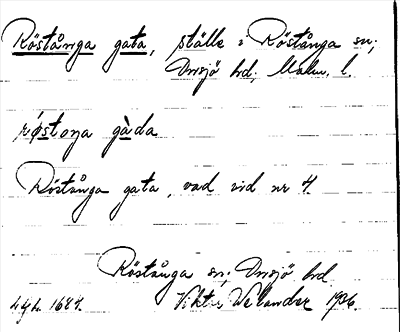 Röstånga gata, ställe i Röstånga sn;
Onsjö hrd; Malm. l.
røstoŋa gàda
Röstånga gata, vad vid nr 4.
Röstånga sn; Onsjö hrd
Viktor Velander 1936.